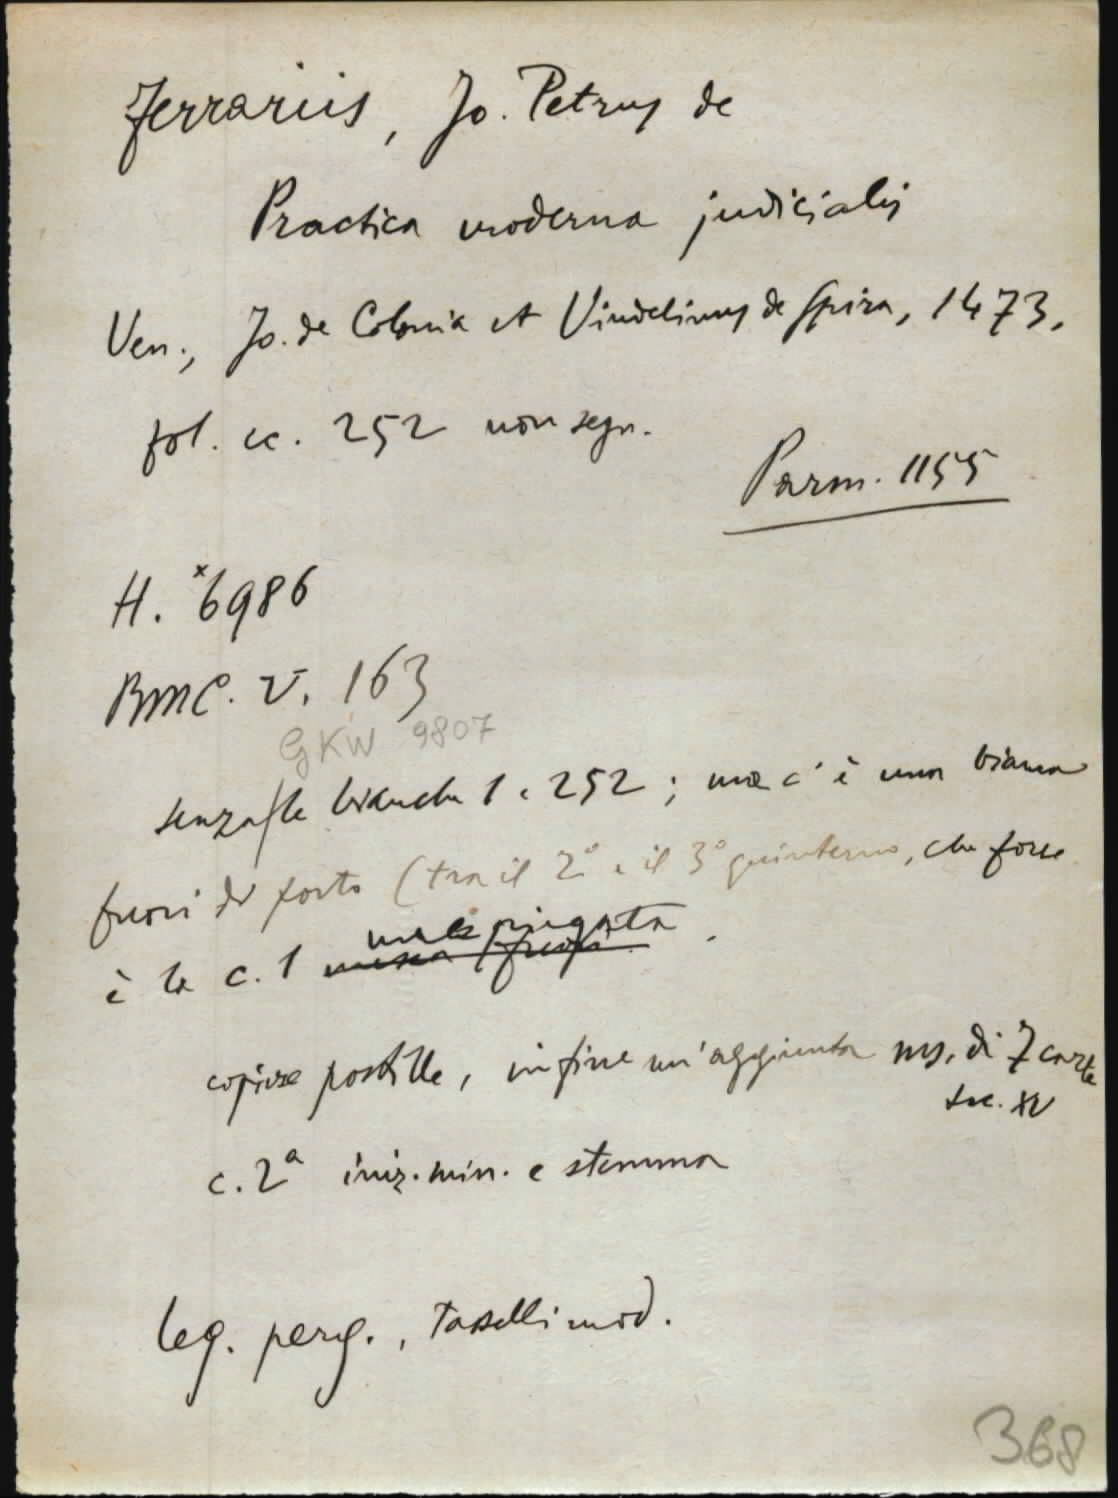 Ferrariis, Jo. Petrus de
Practica moderna judicialis
Ven., Jo. de Colonia et Vindelinus de Spira, 1473,
fol. cc. 252 non segn.
Parm. 1155
H. *6986
BMC. V. 163
GKW 9807
senza le bianche 1 e 252; ma c'è una bianca
fuori di posto (tra il 2° e il 3° quinterno, che forse
è la c. 1 mal piegata.
copiose postille, in fine un'aggiunta ms. di 7 carte
sec. XV
c. 2ª iniz. min. e stemma
leg. perg., tasselli mod.
368